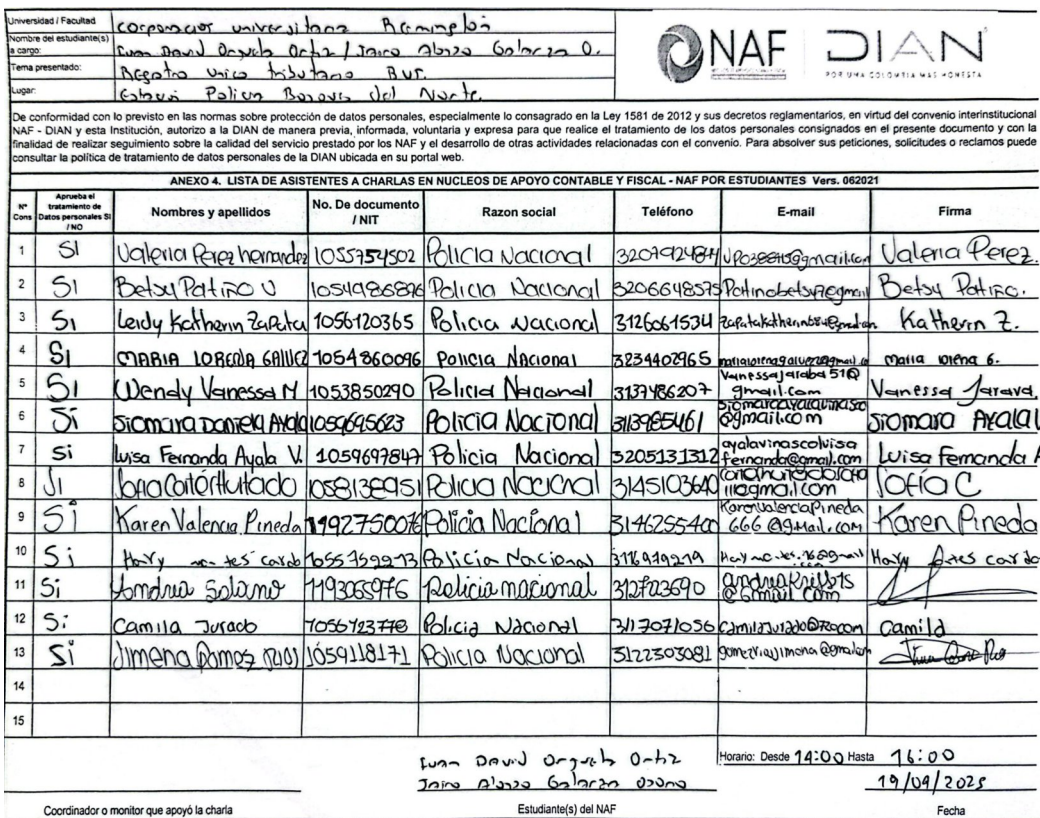 Universidad / Facultad corporacion universitaria Remington
Nombre del estudiante(s) a cargo: Ortiz / Jairo Alonzo Galarza O.
Tema presentado: Registro unico tributario Rut.
Lugar: Policia Bosques del Norte.
NAF DIAN
POR UNA COLOMBIA MÁS HONESTA
De conformidad con lo previsto en las normas sobre protección de datos personales, especialmente lo consagrado en la Ley 1581 de 2012 y sus decretos reglamentarios, en virtud del convenio interinstitucional
NAF - DIAN y esta Institución, autorizo a la DIAN de manera previa, informada, voluntaria y expresa para que realice el tratamiento de los datos personales consignados en el presente documento y con la
finalidad de realizar seguimiento sobre la calidad del servicio prestado por los NAF y el desarrollo de otras actividades relacionadas con el convenio. Para absolver sus peticiones, solicitudes o reclamos puede
consultar la política de tratamiento de datos personales de la DIAN ubicada en su portal web.
ANEXO 4. LISTA DE ASISTENTES A CHARLAS EN NUCLEOS DE APOYO CONTABLE Y FISCAL - NAF POR ESTUDIANTES Vers. 062021
N° Cons Aprueba el tratamiento de Datos personales SI / NO Nombres y apellidos No. De documento / NIT Razon social Teléfono E-mail Firma
1 SI Valeria Perez hernandez 1055754502 Policia Nacional Valeria Perez.
2 SI Betsy Patiño V 1054986896 Policia Nacional 3206648575 Betsy Patiño.
3 SI Leidy Katherin Zapata 1056120365 Policia Nacional 3126061534 Katherin Z.
4 SI MARIA LORENA GALVEZ 1054860096 Policia Nacional 3234402965 maria lorena G.
5 SI Wendy Vanessa M 1053850290 Policia Nacional 3137486207 Vanessajaraba51@gmail.com Vanessa Jarava.
6 Si Siomara Daniela Ayala 1059695623 Policia Nacional 3113985461 @gmail.com Siomara Ayala V
7 Si Luisa Fernanda Ayala V. 1059697847 Policia Nacional 3205131312 ayalavinascoluisafernanda@gmail.com Luisa Fernanda A
8 SI Sofia Cortés Hurtado 1058138951 Policia Nacional 3145103640 Sofía C
9 Si Karen Valencia Pineda 1192750076 Policia Nacional 3146255400 KarenValenciaPineda666@gmail.com Karen Pineda
10 Si Policia Nacional
11 Si Andrea Solano 1193065976 Policia nacional
12 Si Camila Jurado Policia Nacional 3117071056 Camila
13 Si Jimena Gomez Rios 1059118171 Policia Nacional 3122303081
14
15
Ortiz
Jairo Alonzo Galarza
Horario: Desde 14:00 Hasta 16:00
19/09/2025
Coordinador o monitor que apoyó la charla Estudiante(s) del NAF Fecha